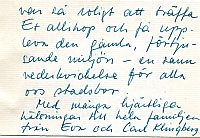 var så roligt att träffa
Er allihop och få upp-
leva den gamla, förtju-
sande miljön – en sann
vederkvickelse för alla
oss stadsbor.
Med många hjärtliga
hälsningar till hela familjen
från Eva och Carl Klingberg